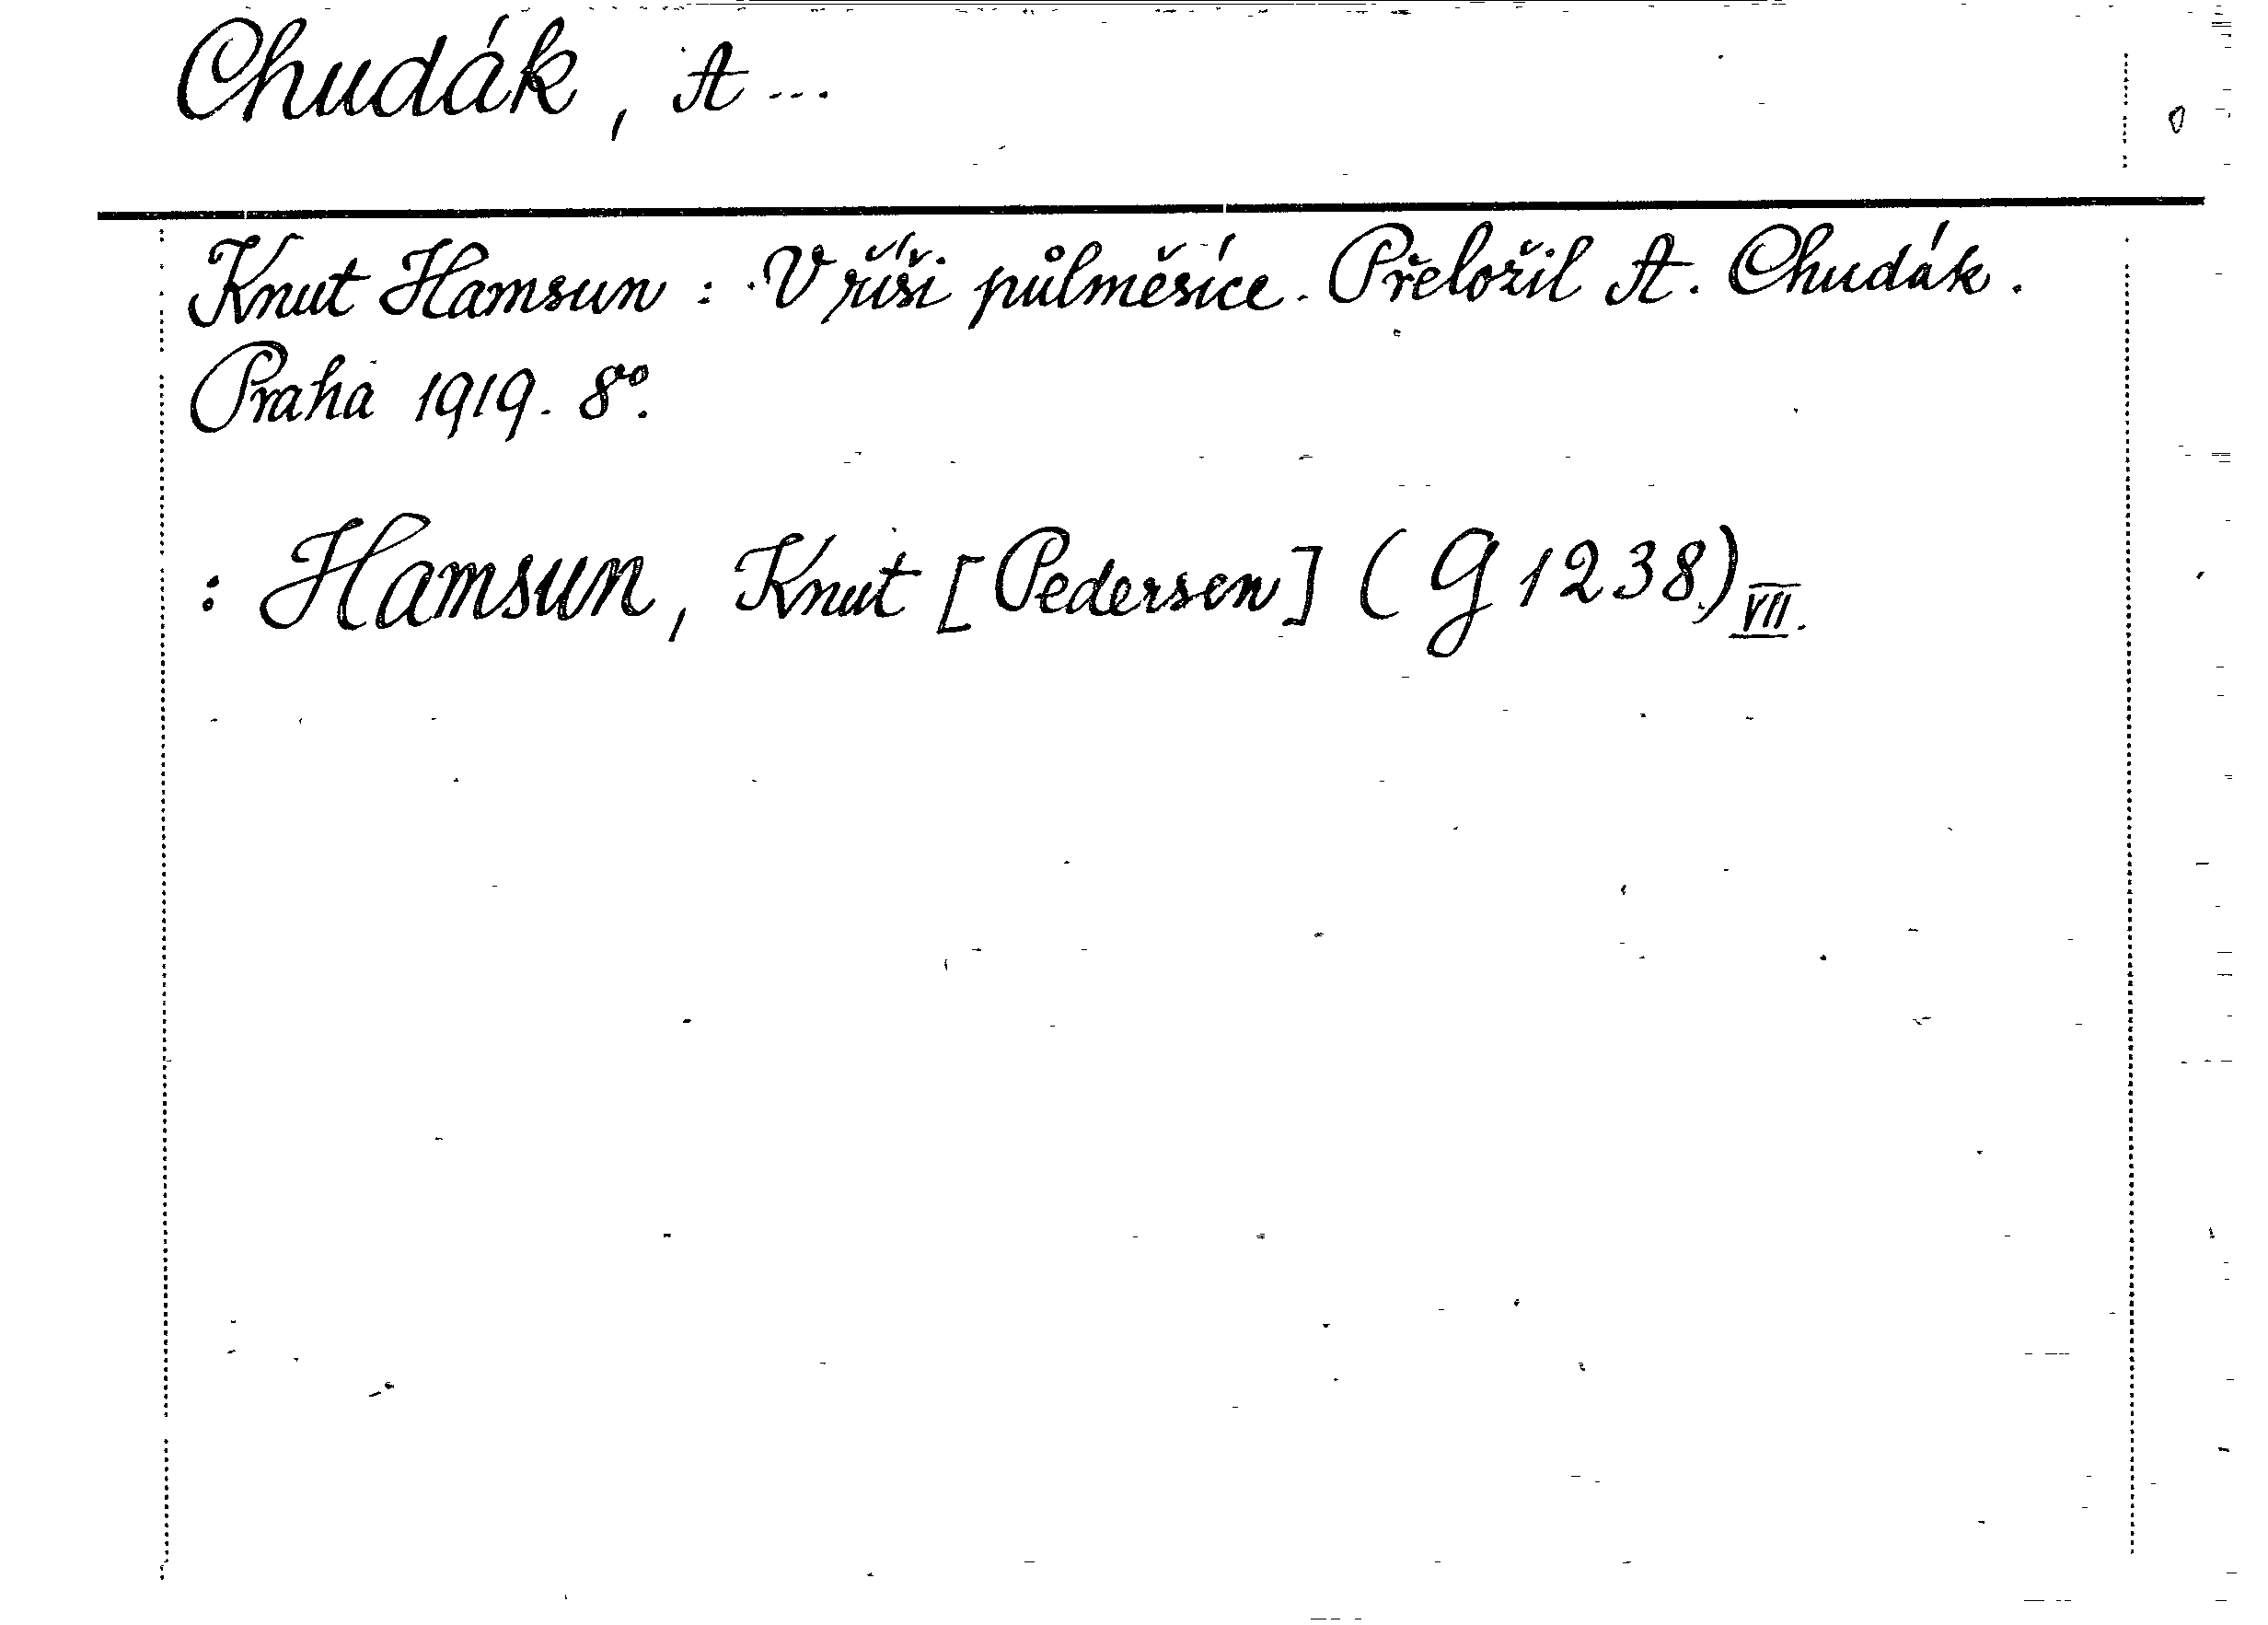 Chudák, A...
Knut Hamsun: V říši půlměsíce. Přeložil A. Chudák.
Praha 1919. 8°.
: Hamsun, Knut [Pedersen] (G 1238) VII.